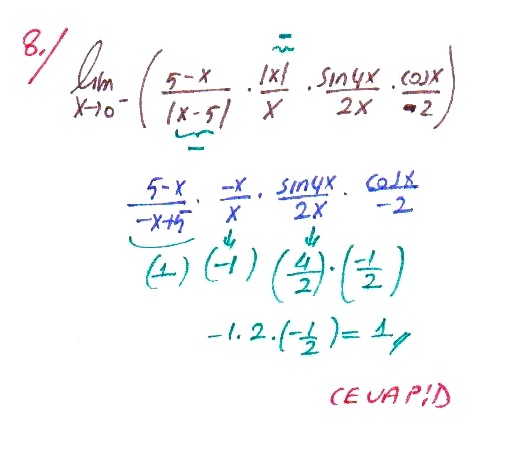 8./ lim x→0⁻ ( (5-x)/|x-5| · |x|/x · sin4x/2x · cosx/-2 )
(5-x)/(-x+5) · -x/x · sin4x/2x · cosx/-2
(1) (-1) (4/2) · (-1/2)
-1 . 2 . (-1/2) = 1,
CEVAP:D